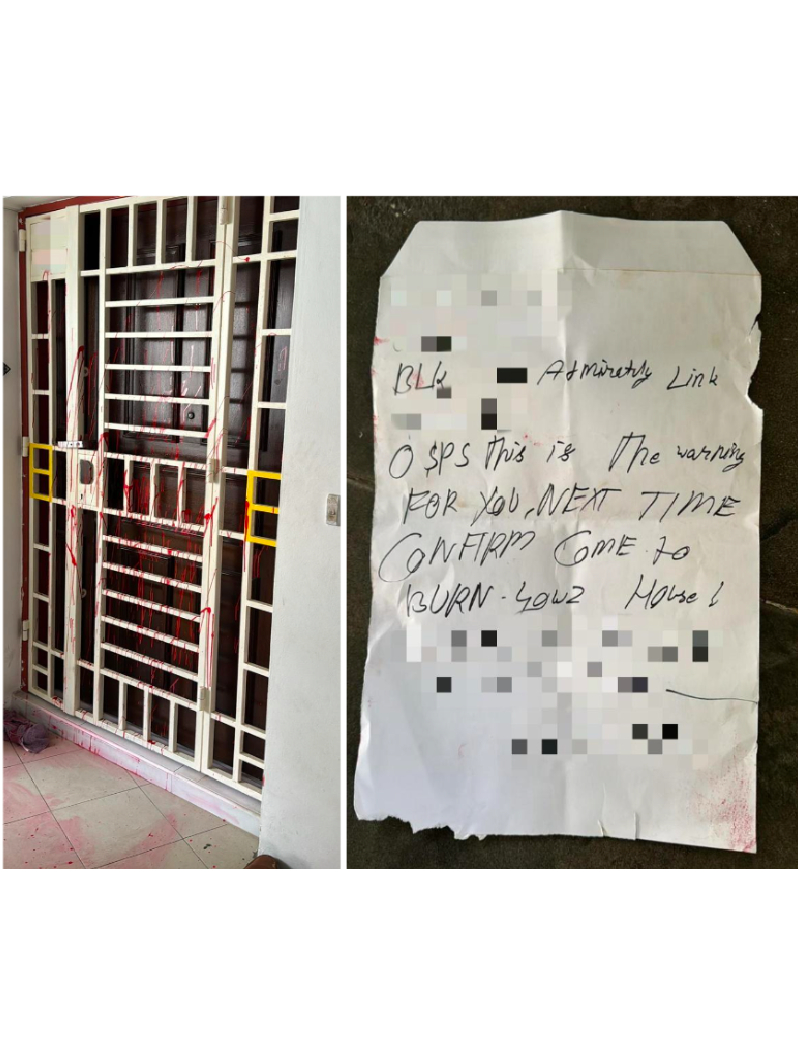 BLK Admiralty Link
O $P$ This is The warning
FOR YOU, NEXT TIME
CONFIRM COME to
BURN - your House !